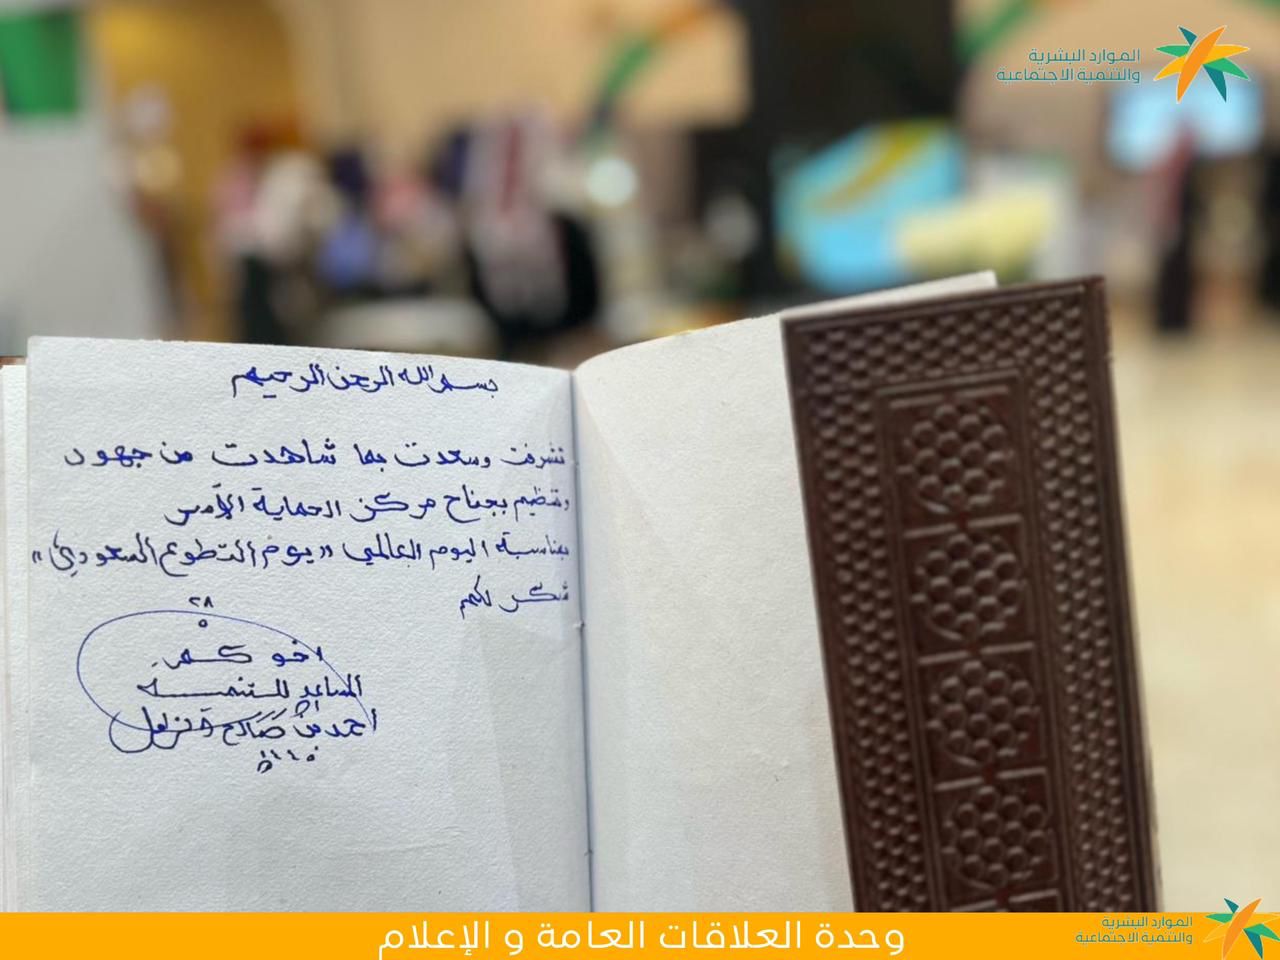 الموارد البشرية
والتنمية الاجتماعية
بسم الله الرحمن الرحيم
تشرفت وسعدت بما شاهدت من جهود
وتنظيم بجناح مركز الحماية الأسر
بمناسبة اليوم العالمي "يوم التطوع السعودي"
شكر لكم
٢٨
٥
اخوكم
المساعد للتنمية
أحمد بن صالح
وحدة العلاقات العامة و الإعلام
الموارد البشرية
والتنمية الاجتماعية